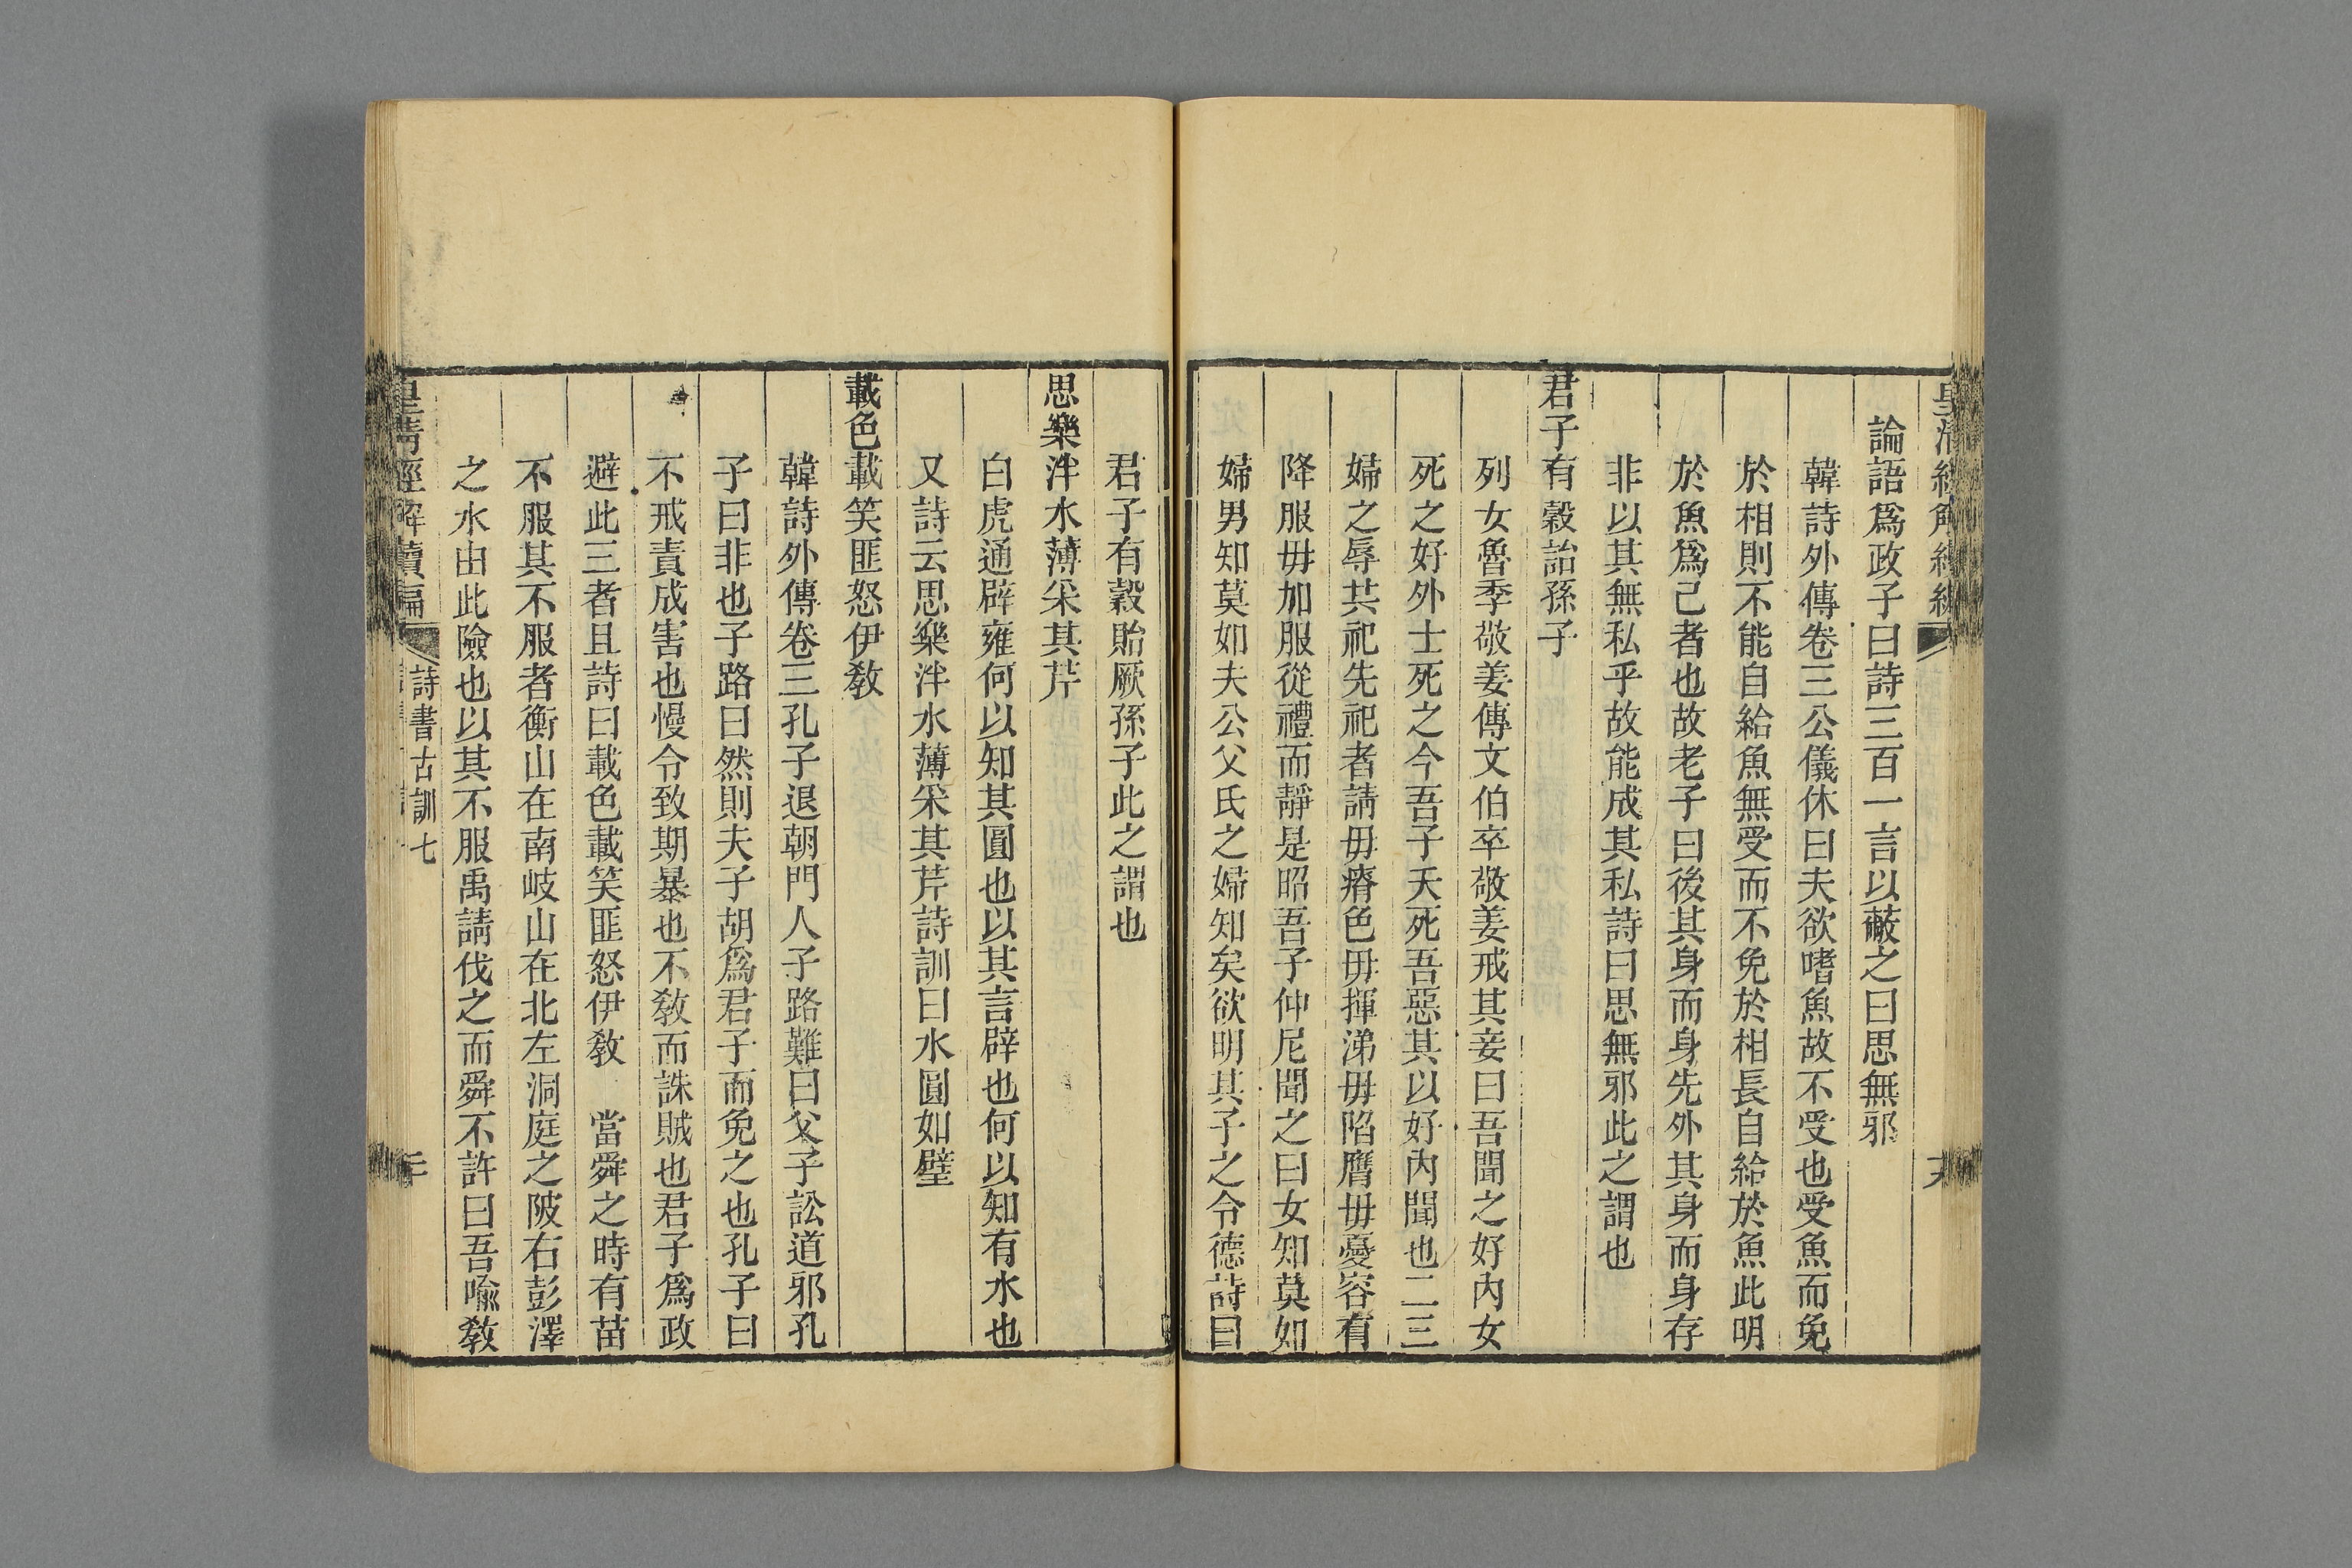 論語爲政子曰詩三百一言以蔽之曰思無邪
韓詩外傳卷三公儀休曰夫欲嗜魚故不受也受魚而免
於相則不能自給魚無受而不免於相長自給於魚此明
於魚爲己者也故老子曰後其身而身先外其身而身存
非以其無私乎故能成其私詩曰思無邪此之謂也
君子有穀詒孫子
列女魯季敬姜傳文伯卒敬姜戒其妾曰吾聞之好內女
死之好外士死之今吾子夭死吾惡其以好內聞也二三
婦之辱共祀先祀者請毋瘠色毋揮涕毋陷膺毋憂容有
降服毋加服從禮而靜是昭吾子仲尼聞之曰女知莫如
婦男知莫如夫公父氏之婦知矣欲明其子之令德詩曰
君子有穀貽厥孫子此之謂也
思樂泮水薄采其芹
白虎通辟雍何以知其圓也以其言辟也何以知有水也
又詩云思樂泮水薄采其芹詩訓曰水圓如璧
載色載笑匪怒伊教
韓詩外傳卷三孔子退朝門人子路難曰父子訟道邪孔
子曰非也子路曰然則夫子胡爲君子而免之也孔子曰
不戒責成害也慢令致期暴也不教而誅賊也君子爲政
避此三者且詩曰載色載笑匪怒伊教 當舜之時有苗
不服其不服者衡山在南岐山在北左洞庭之陂右彭澤
之水由此險也以其不服禹請伐之而舜不許曰吾喻教
皇清經解續編
詩書古訓七